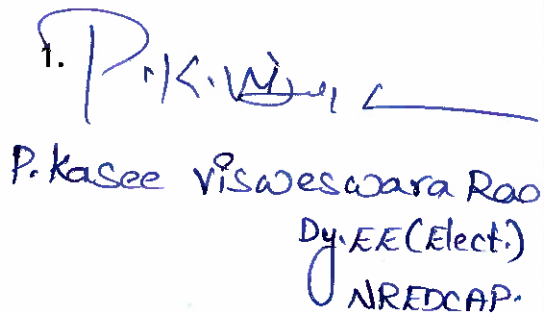 1. P.K.
P. Kasee Visweswara Rao
Dy.EE(Elect.)
NREDCAP.